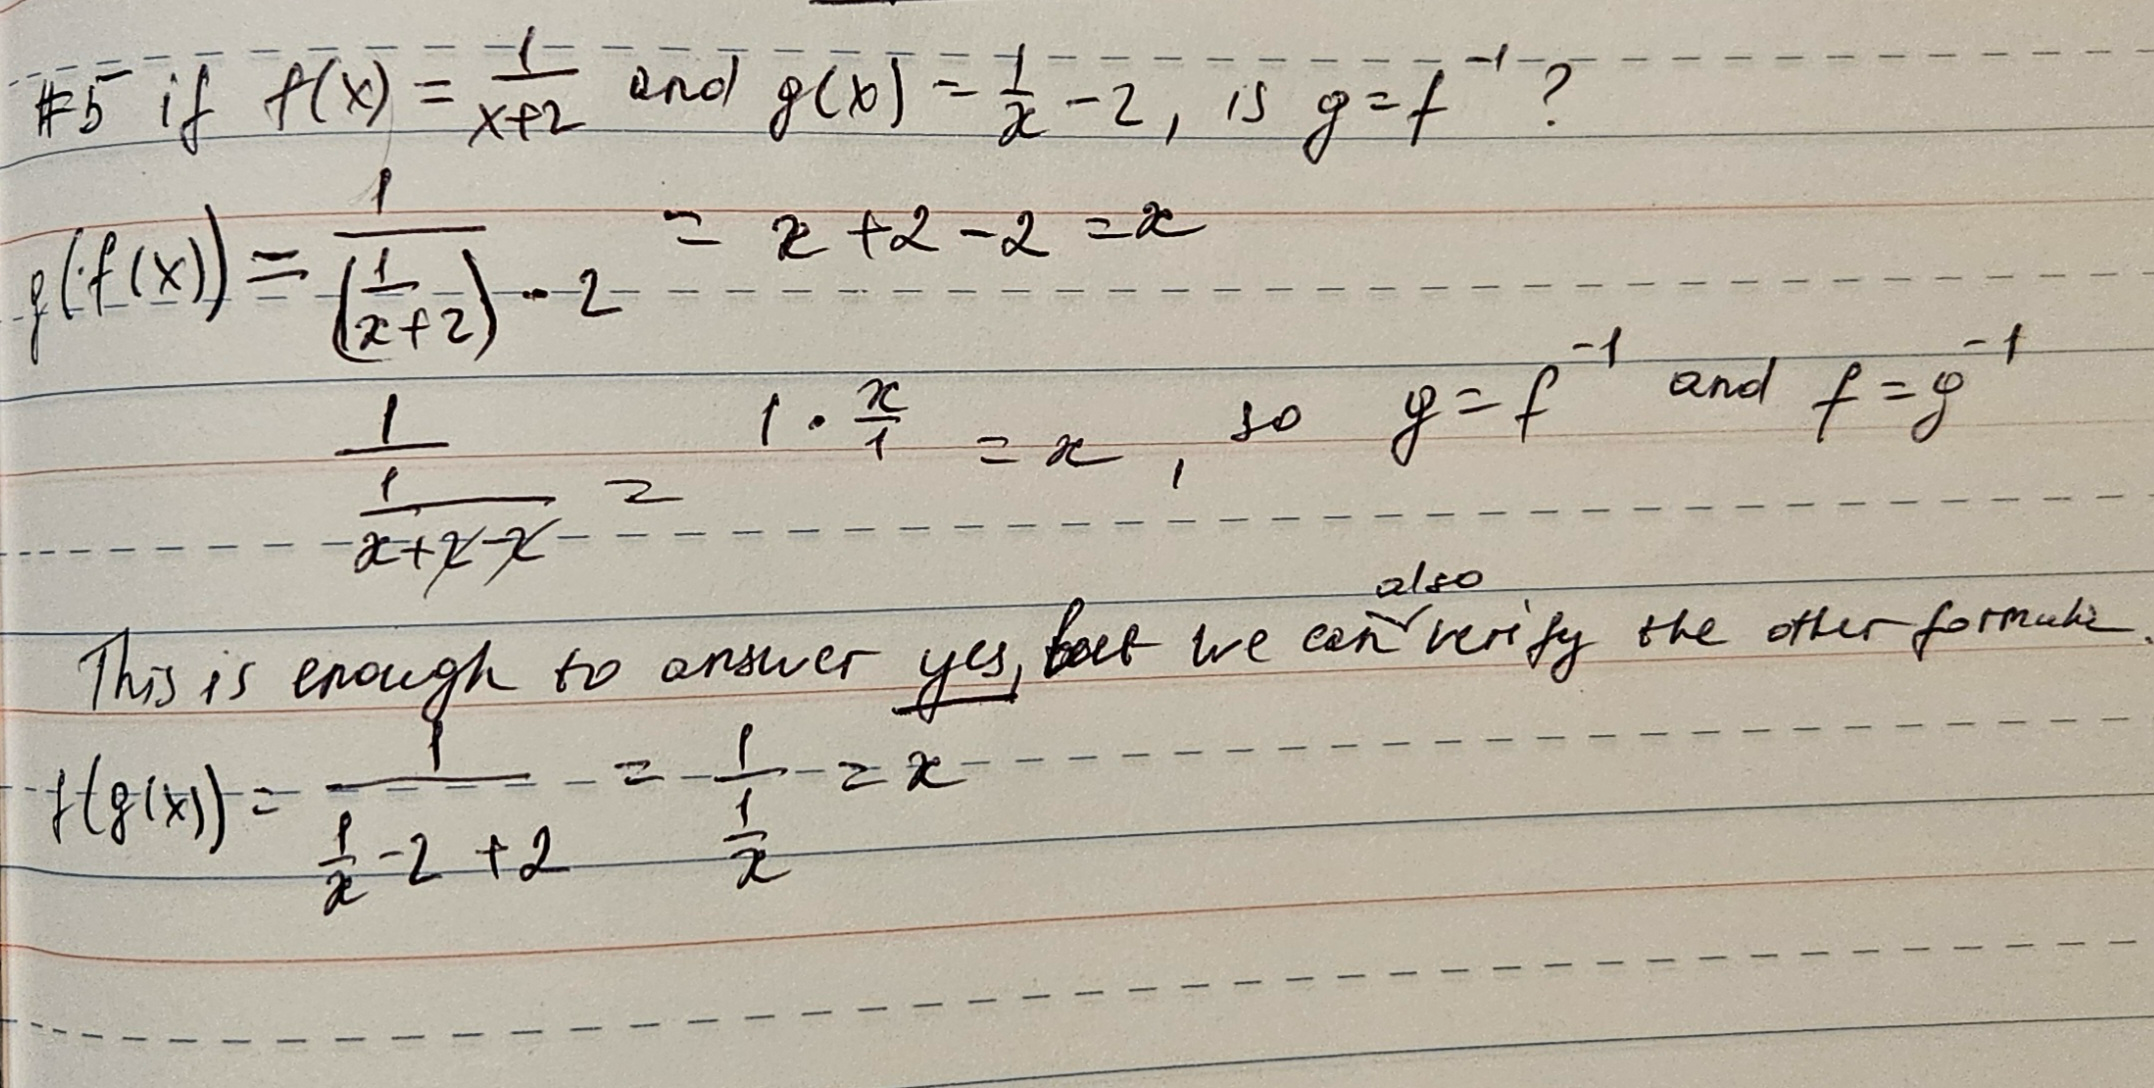 #5 if f(x) = 1/(x+2) and g(x) = 1/x - 2, is g = f^-1 ?
g(f(x)) = 1/(1/(x+2)) - 2 = x + 2 - 2 = x
1/(1/(x+2-2)) = 1 · x/1 = x, so g = f^-1 and f = g^-1
This is enough to answer yes, but we can also verify the other formula.
f(g(x)) = 1/(1/x - 2 + 2) = 1/(1/x) = x